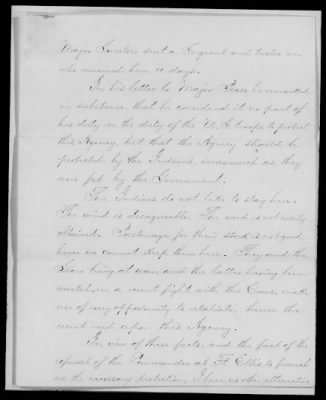 Major Sanders sent a Sergeant and twelve men
who remained here 10 days.
In his letter to Major Pease he remarked
in substance, that he considered it no part of
his duty or the duty of the U. S. troops to protect
this Agency, but that the Agency should be
protected by the Indians, inasmuch as they
were fed by the Government.
The Indians do not like to stay here.
The wind is disagreeable. The wood is not easily
obtained. Pasturage for their stock is not good
hence we cannot keep them here. They and the
Sioux being at war, and the latter having been
worsted in a recent fight with the Crows, make
use of every opportunity to retaliate, hence the
recent raid upon this Agency.
In view of these facts, and the fact of the
refusal of the Commander at Ft Ellis to furnish
us the necessary protection, I have no other alternative